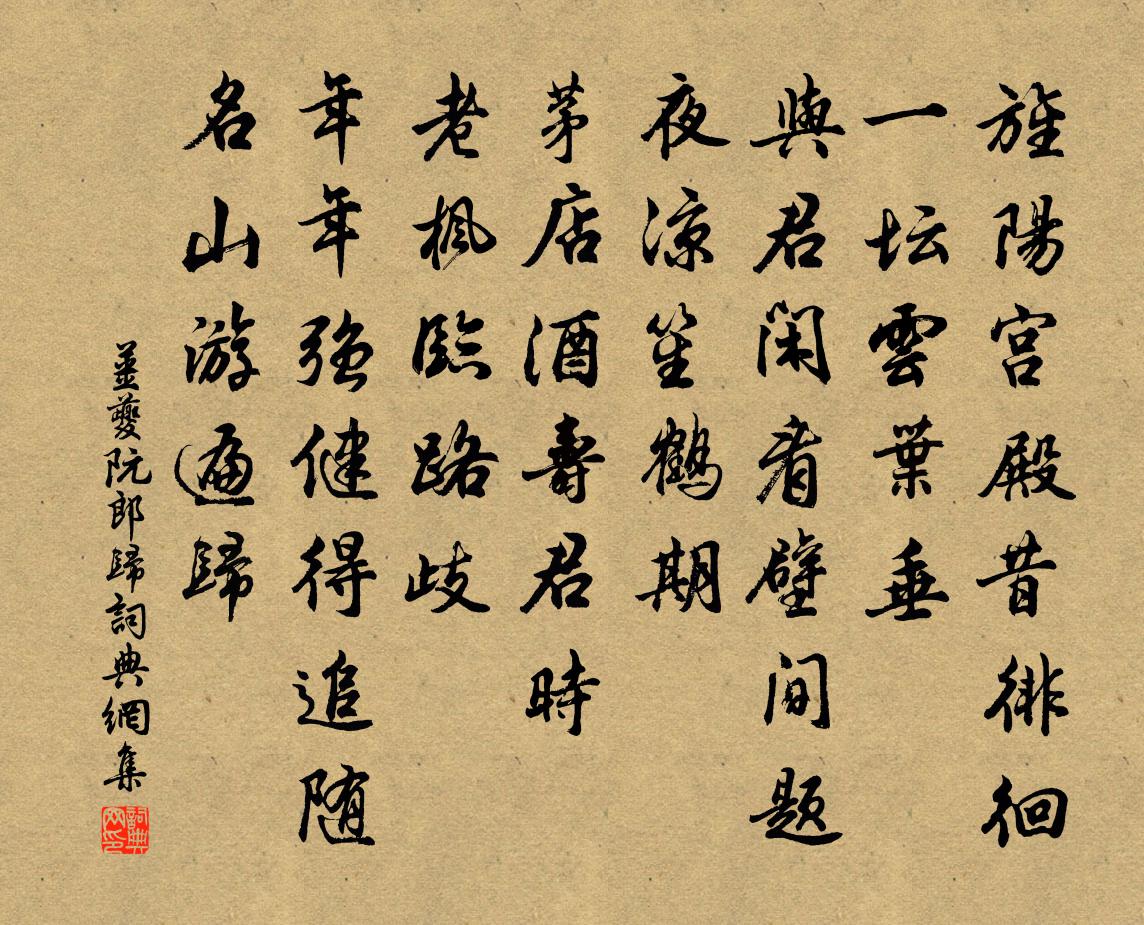 旌陽宫殿昔徘徊
一坛雲葉垂
與君閑看壁間題
夜凉笙鶴期
茅店酒壽君時
老楓臨路歧
年年强健得追随
名山游遍歸
姜夔阮郎歸詞典網集
詞典网印